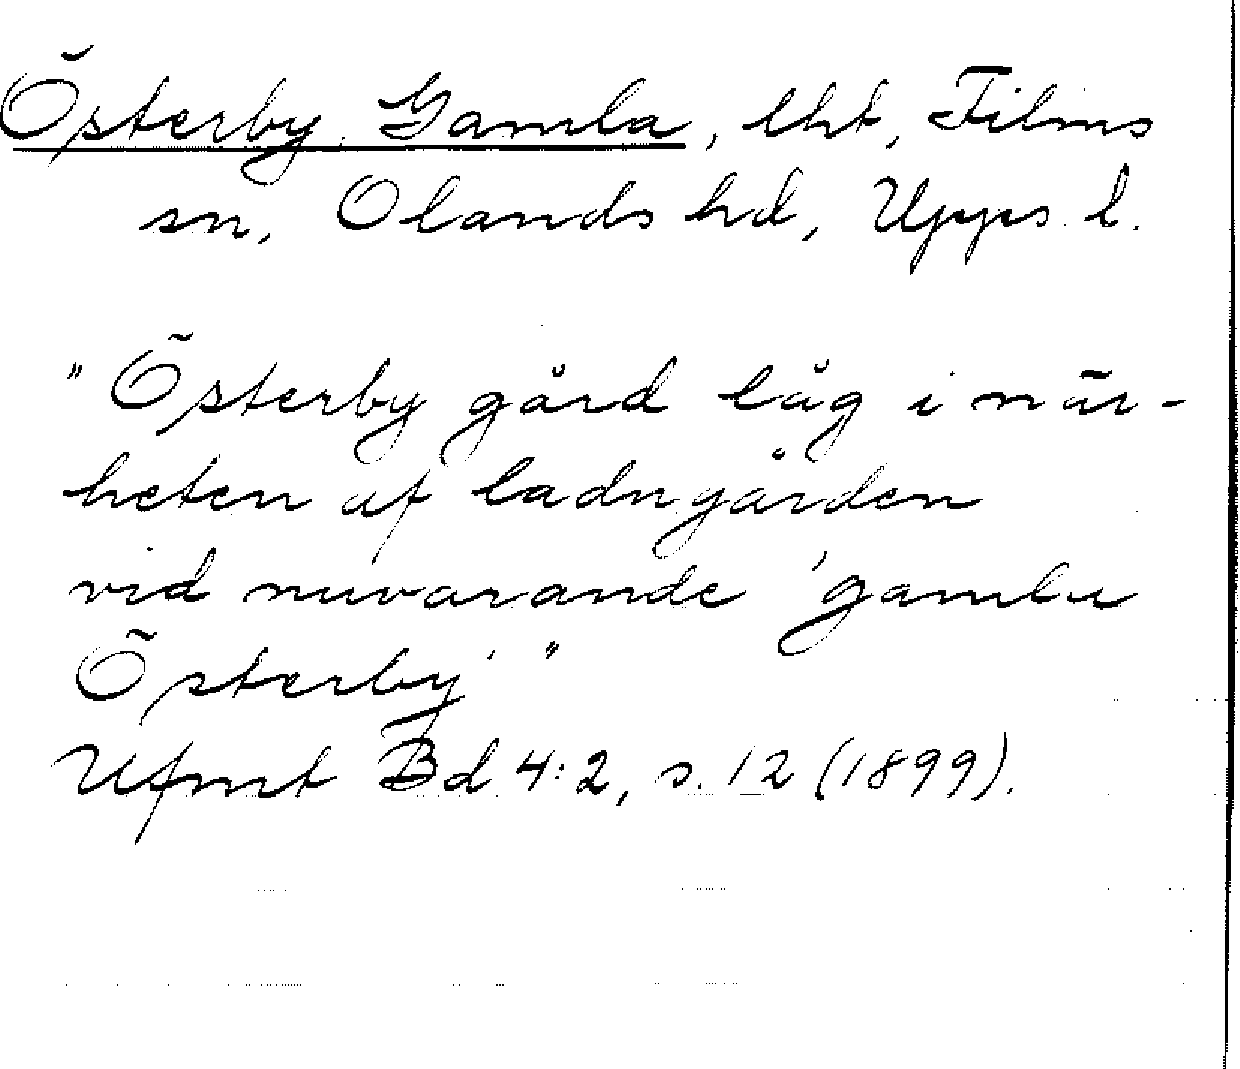 Österby, Gamla, lht, Films
sn, Olands hd, Upps. l.
"Österby gård låg i när-
heten af ladugården
vid nuvarande 'gamla
Österby'"
Ufmt Bd 4:2, s. 12 (1899).